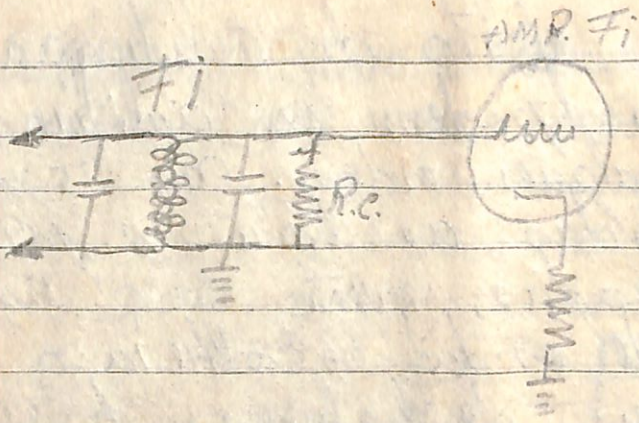 AMP. Fi
Fi
R.C.